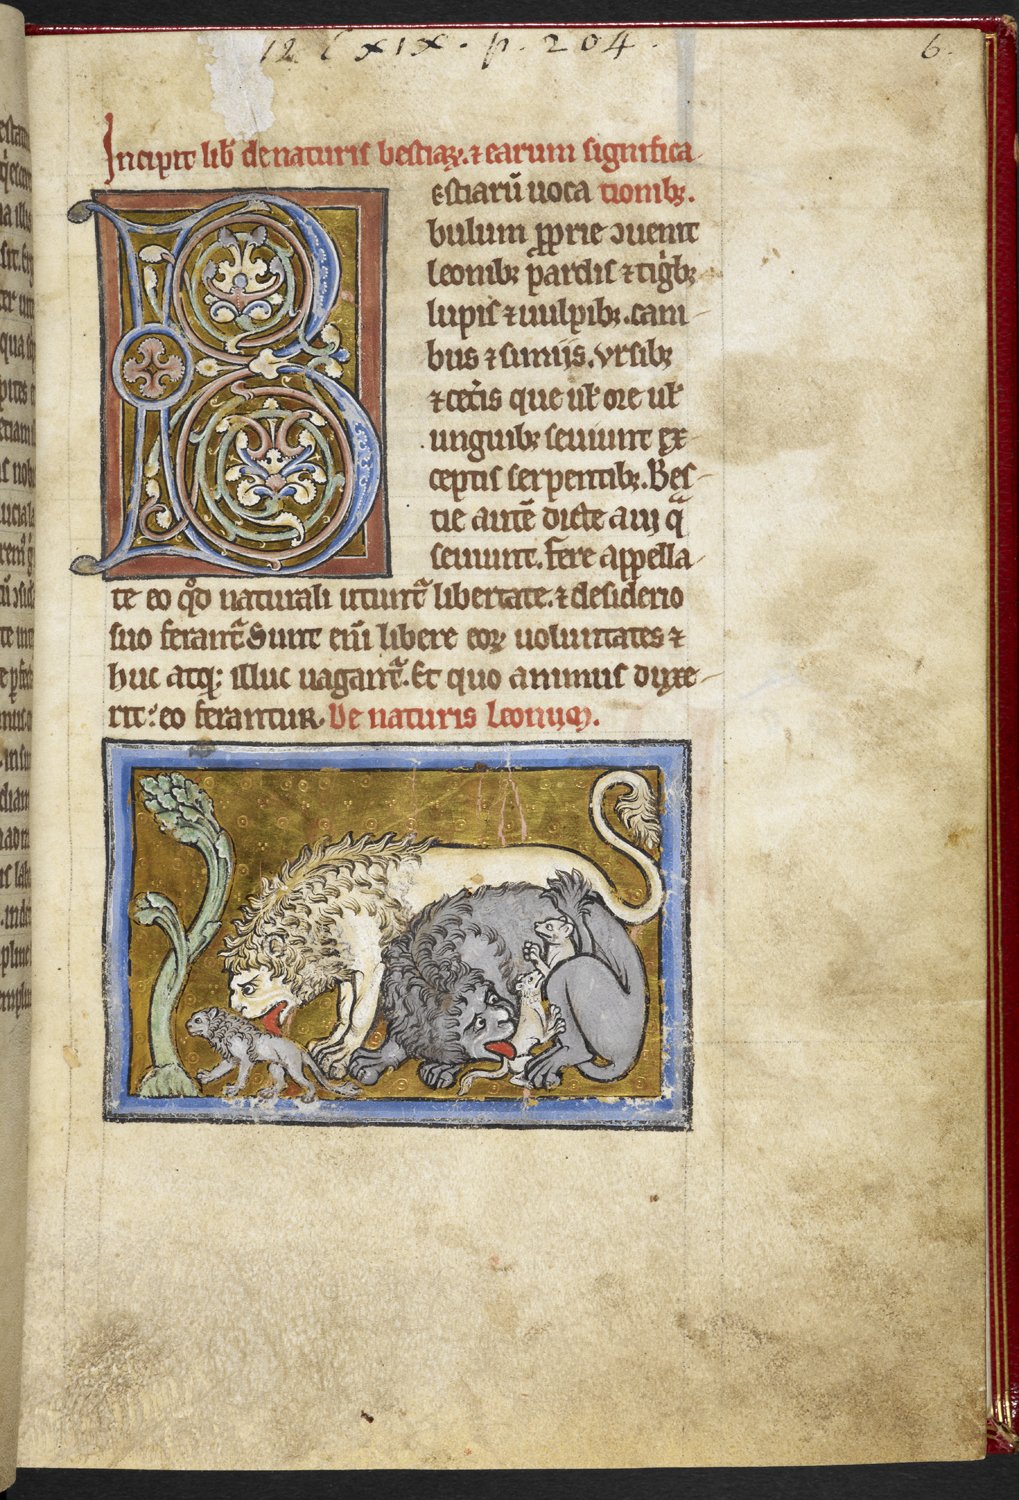 12 C XIX. p. 204.
6.
Incipit lib̄ de naturis bestiaꝝ. ⁊ earum significa
estiarū uoca tionibꝫ.
bulum ꝓprie ↄuenit
leonibꝫ pardis ⁊ tigͥbꝫ
lupis ⁊ uulpibꝫ. cani
bus ⁊ simijs. vrsibꝫ
⁊ ceteͥis que uł ore uł
unguibꝫ seuiunt ex
ceptis serpentibꝫ. Bes
tie autē dicte a ui qͣ
seuiunt. fere appella
te eo qͦd naturali utunt᷑ libertate. ⁊ desiderio
suo ferant᷑ Sunt eni̅ libere eoꝝ uoluntates ⁊
huc atqꝫ illuc uagant᷑. Et quo animus duxe
rit: eo ferantur. De naturis leonum.